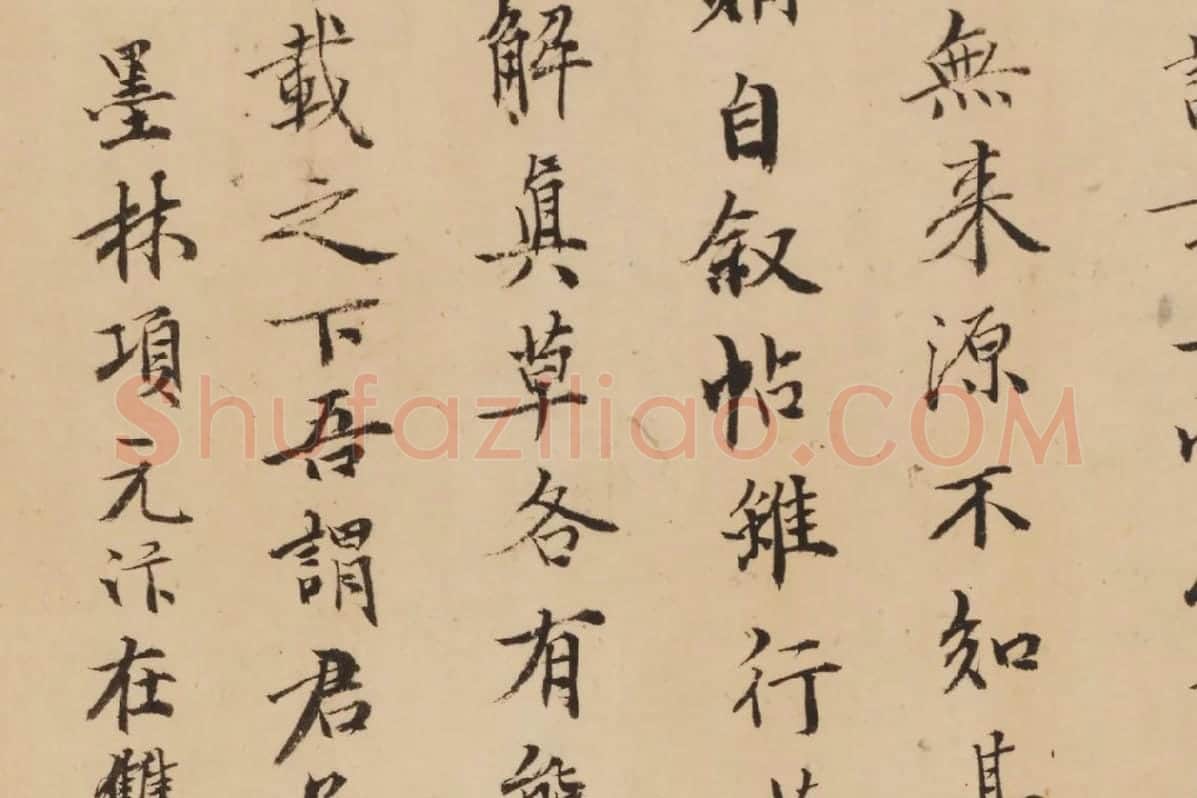 無来源不知其
自叙帖雖行
解真草各有能
載之下吾謂君
墨林項元汴在雙
Shufaziliao.COM